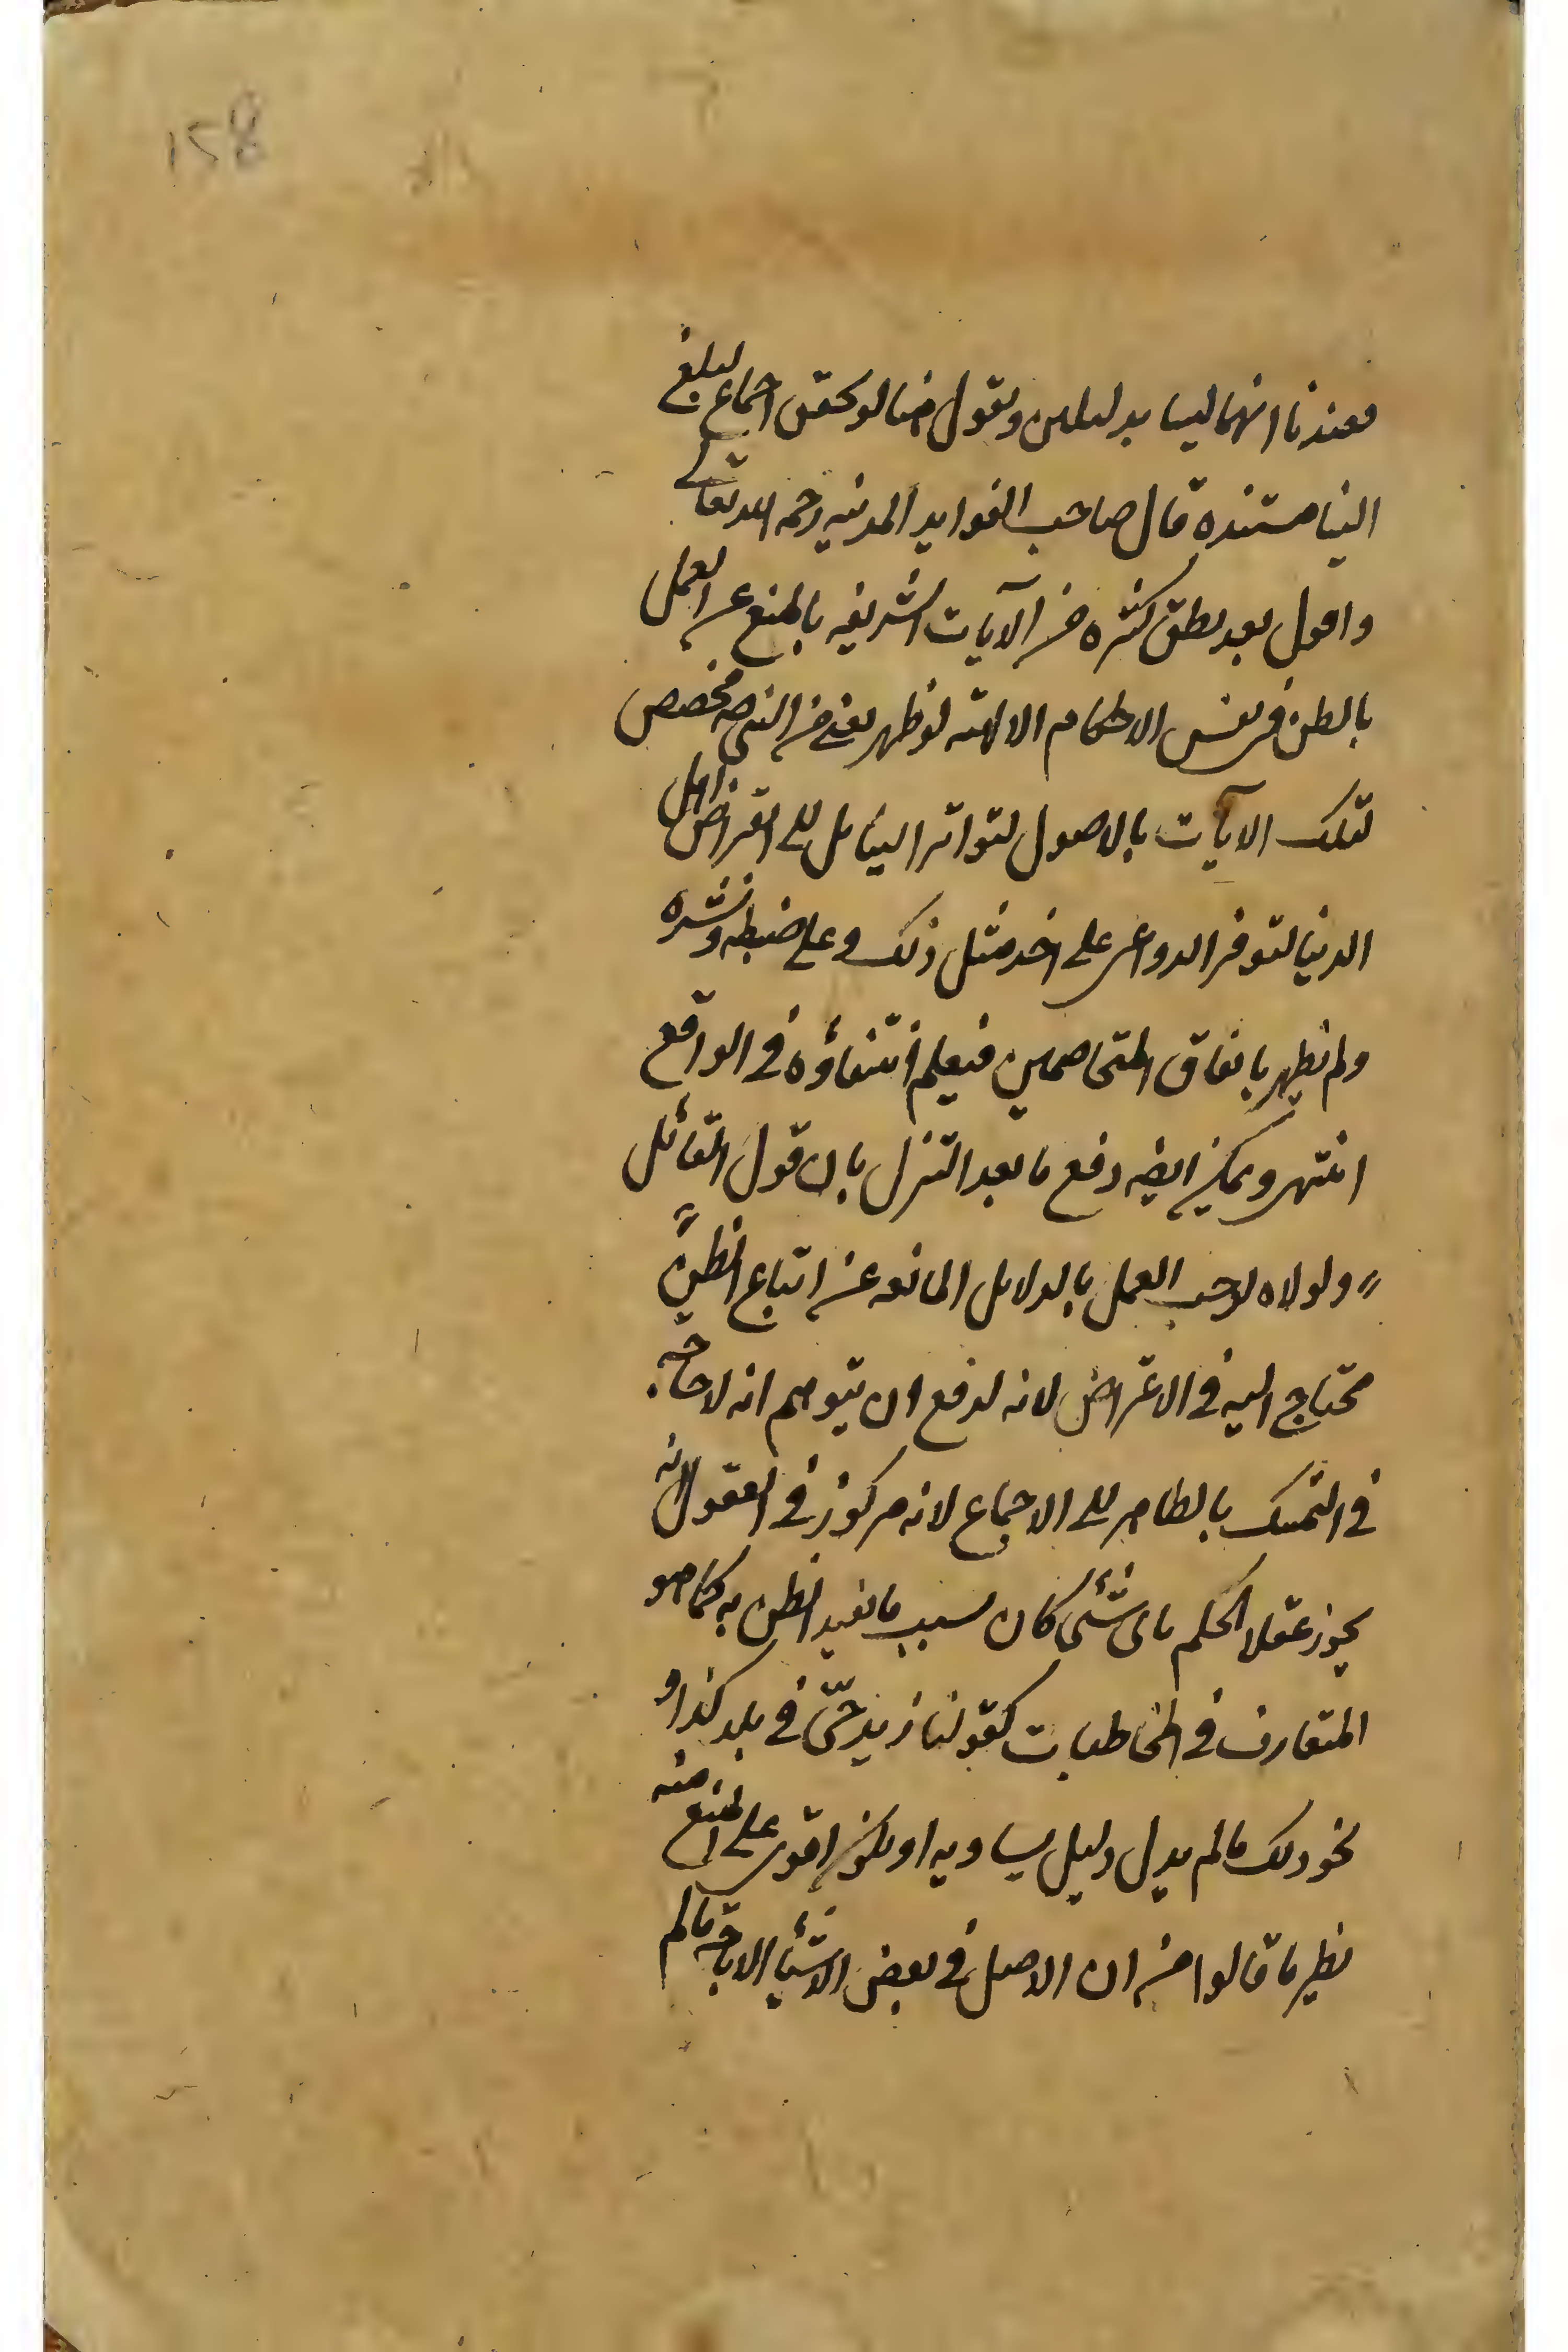 158
فعندنا انهما ليسا بدليلين ونقول هنا لو تحقق اجماع لبلغ
الينا مستنده قال صاحب الفوايد المدنيه رحمه الله تعالى
واقول بعد نطق كثيرة من الآيات الشريفه بالمنع عن العمل
بالظن في نفس الاحكام الالهيه لو ظهر يعني من النبي ص مخصص
لتلك الآيات بالاصول لتواتر الينا بل الى انقراض اهل
الدنيا لتوفر الدواعى على اخذ مثل ذلك وعلى ضبطه ونشره
ولم يظهر باتفاق المتخاصمين فيعلم انتفاؤه في الواقع
انتهى ويمكن ايضه دفع ما بعد التنزل بان قول القائل
" ولولاه لوجب العمل بالدلايل المانعه عن اتباع الظن "
محتاج اليه في الاعتراض لانه لدفع ان يتوهم انه لا حاجه
في التمسك بالظاهر الى الاجماع لانه مركوز في العقول انه
يجوز عقلا الحكم باى شئ كان بسبب ما يفيد الظن به كما هو
المتعارف في المخاطبات كقولنا زيد حىّ في بلد كذا و
نحو ذلك ما لم يدل دليل يساويه او يكون اقوى على المنع منه
نظير ما قالوا من ان الاصل في بعض الاشياء الاباحه ما لم